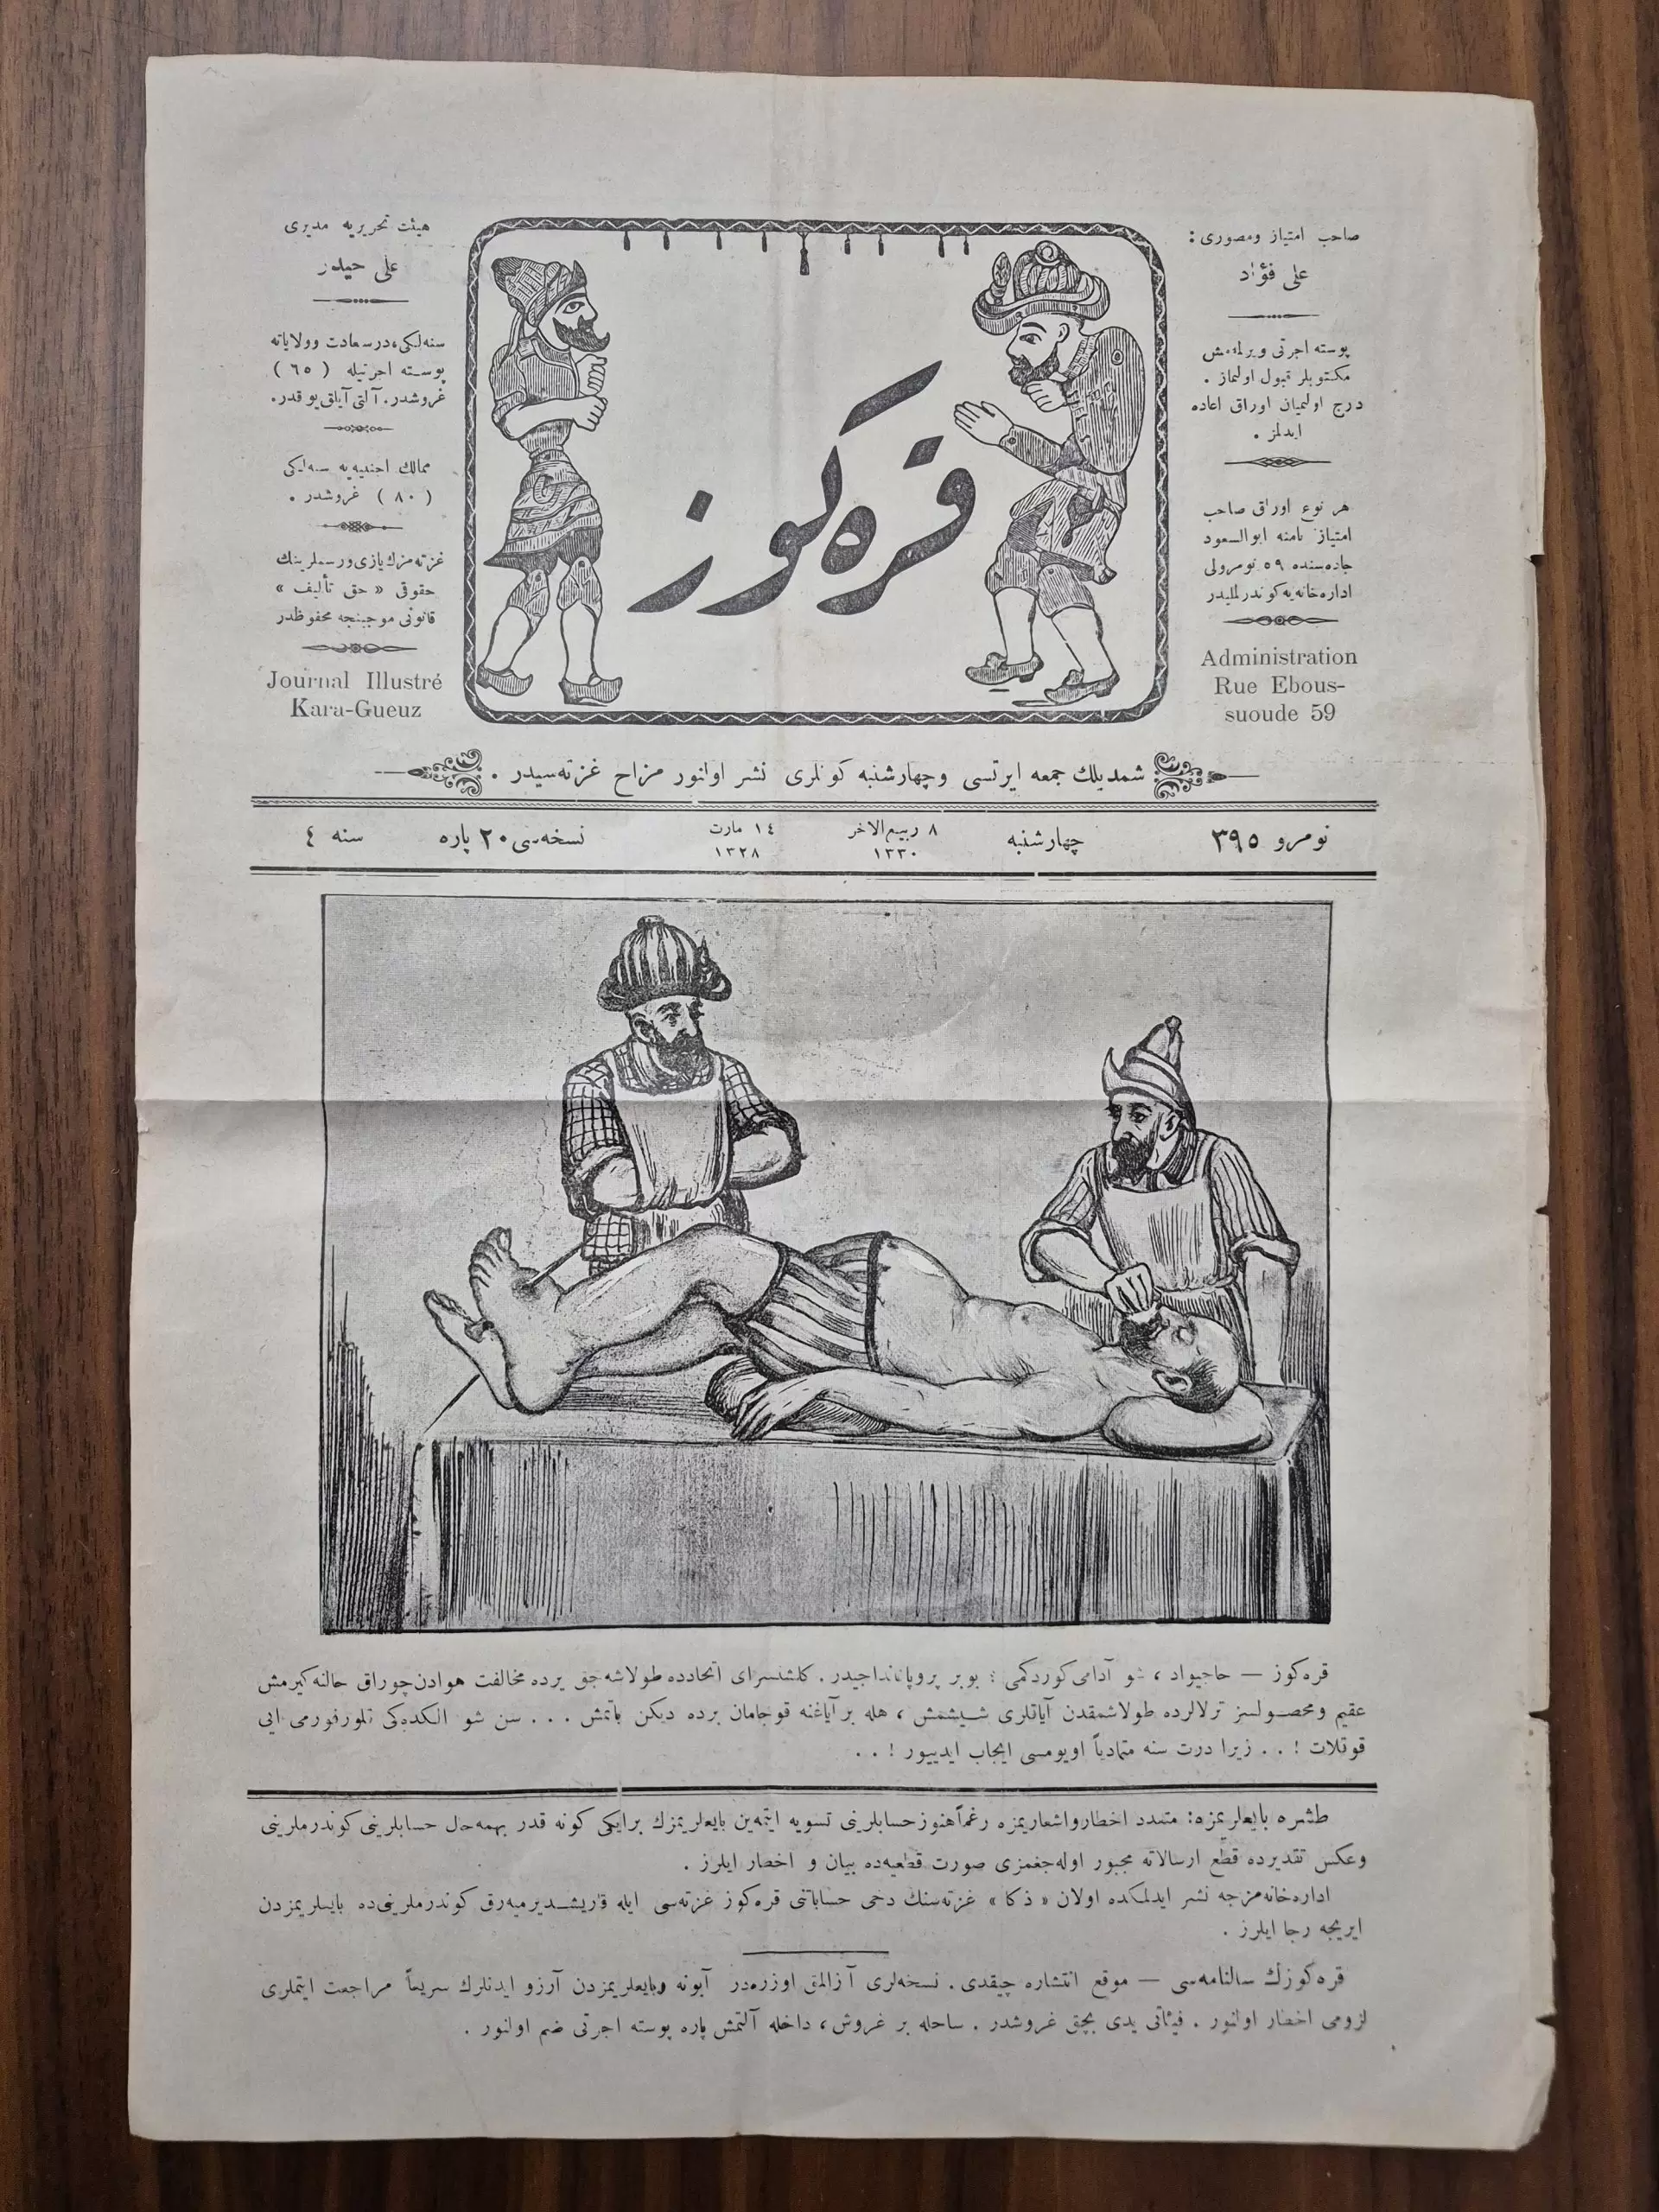 صاحب امتیاز ومصوری :
علی فؤاد
پوسته اجرتی ویرلمه‌مش
مکتوبلر قبول اولنماز .
درج اولنمیان اوراق اعاده
ایدلمز .
هر نوع اوراق صاحب
امتیاز نامنه ابوالسعود
جاده‌سنده ٥٩ نومرولی
اداره‌خانه‌یه کوندرلملیدر
Administration
Rue Ebous-
suoude 59
قره‌کوز
هیئت تحریریه مدیری
علی حیدر
سنه‌لکی، درسعادت وولایاته
پوسته اجرتیله ( ٦٥ )
غروشدر. آلتی آیلق یوقدر.
ممالک اجنبیه‌یه سنه‌لکی
( ٨٠ ) غروشدر .
غزته‌مزك یازی ورسملرینك
حقوقی « حق تألیف »
قانونی موجبنجه محفوظدر
Journal Illustré
Kara-Gueuz
شمدیلك جمعه ایرتسی وچهارشنبه کونلری نشر اولنور مزاح غزته‌سیدر .
نومرو ٣٩٥
چهارشنبه
٨ ربیع‌الاخر
١٣٣٠
١٤ مارت
١٣٢٨
نسخه‌سی ٢٠ پاره
سنه ٤
قره‌کوز — حاجیواد ، شو آدامی کوردکمی ؛ بو بر پروپاغنداجیدر . کلشنسرای اتحادده طولاشه‌جق یرده مخالفت هوادن چوراق حالنه کیرمش
عقیم ومحصولسز ترلالرده طولاشمقدن آیاقلری شیشمش ، هله بر آیاغنه قوجامان برده دیکن باتمش . . . سن شو الکده‌کی قلوروفورمی ایی
قوقلات ! . . زیرا درت سنه متمادیاً اویومسی ایجاب ایدییور ! . .
طشره بایعلریمزه: متعدد اخطار واشعاریمزه رغماً هنوز حسابلرینی تسویه ایتمه‌ین بایعلریمزك برایکی کونه قدر بهمه‌حال حسابلرینی کوندرملرینی
وعکس تقدیرده قطع ارسالاته مجبور اوله‌جغمزی صورت قطعیه‌ده بیان و اخطار ایلرز .
اداره‌خانه‌مزجه نشر ایدلمکده اولان « ذکا » غزته‌سنك دخی حساباتنی قره‌کوز غزته‌سی ایله قاریشدیرمیه‌رق کوندرملرینی‌ده بایعلریمزدن
ایریجه رجا ایلرز .
قره‌کوزك سالنامه‌سی — موقع انتشاره چیقدی . نسخه‌لری آزالمق اوزره‌در آبونه وبایعلریمزدن آرزو ایدنلرك سریعاً مراجعت ایتملری
لزومی اخطار اولنور . فیئاتی یدی بچق غروشدر . ساحله بر غروش ، داخله آلتمش پاره پوسته اجرتی ضم اولنور .